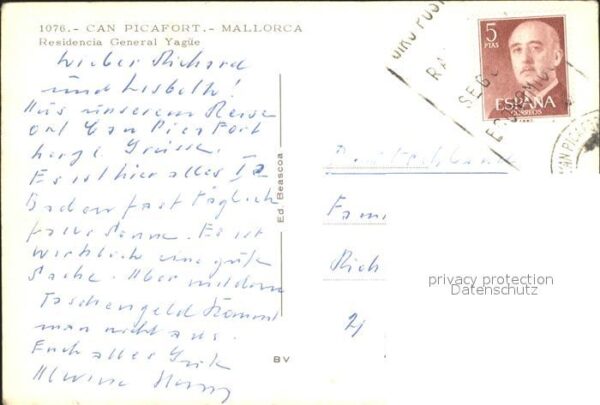 1076.- CAN PICAFORT.- MALLORCA
Residencia General Yagüe
Lieber Richard
und Lisbeth!
Aus unserem Reise
ort Can Picafort
herzl. Grüsse.
Es ist hier alles Ia
Baden fast täglich
Sonne. Es ist
wirklich eine gute
Sache. Aber mit dem
Taschengeld kommt
man nicht aus.
Euch alles Gute
Ed. Beascoa
BV
5
PTAS
ESPAÑA
CORREOS
GIRO POST
Deutschland
Fami
Rich
privacy protection
Datenschutz